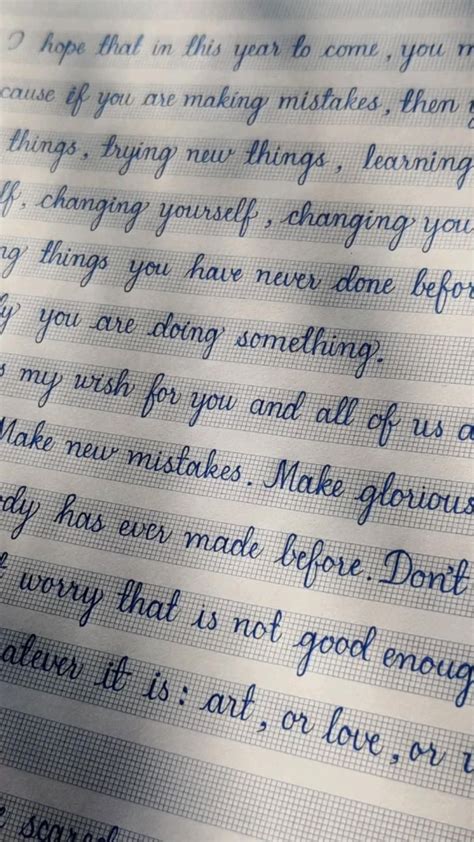 I hope that in this year to come, you m
cause if you are making mistakes, then
things, trying new things, learning
lf, changing yourself, changing you
ng things you have never done befor
ly you are doing something.
s my wish for you and all of us a
Make new mistakes. Make glorious
ody has ever made before. Don't
t worry that is not good enoug
atever it is: art, or love, or
e scared